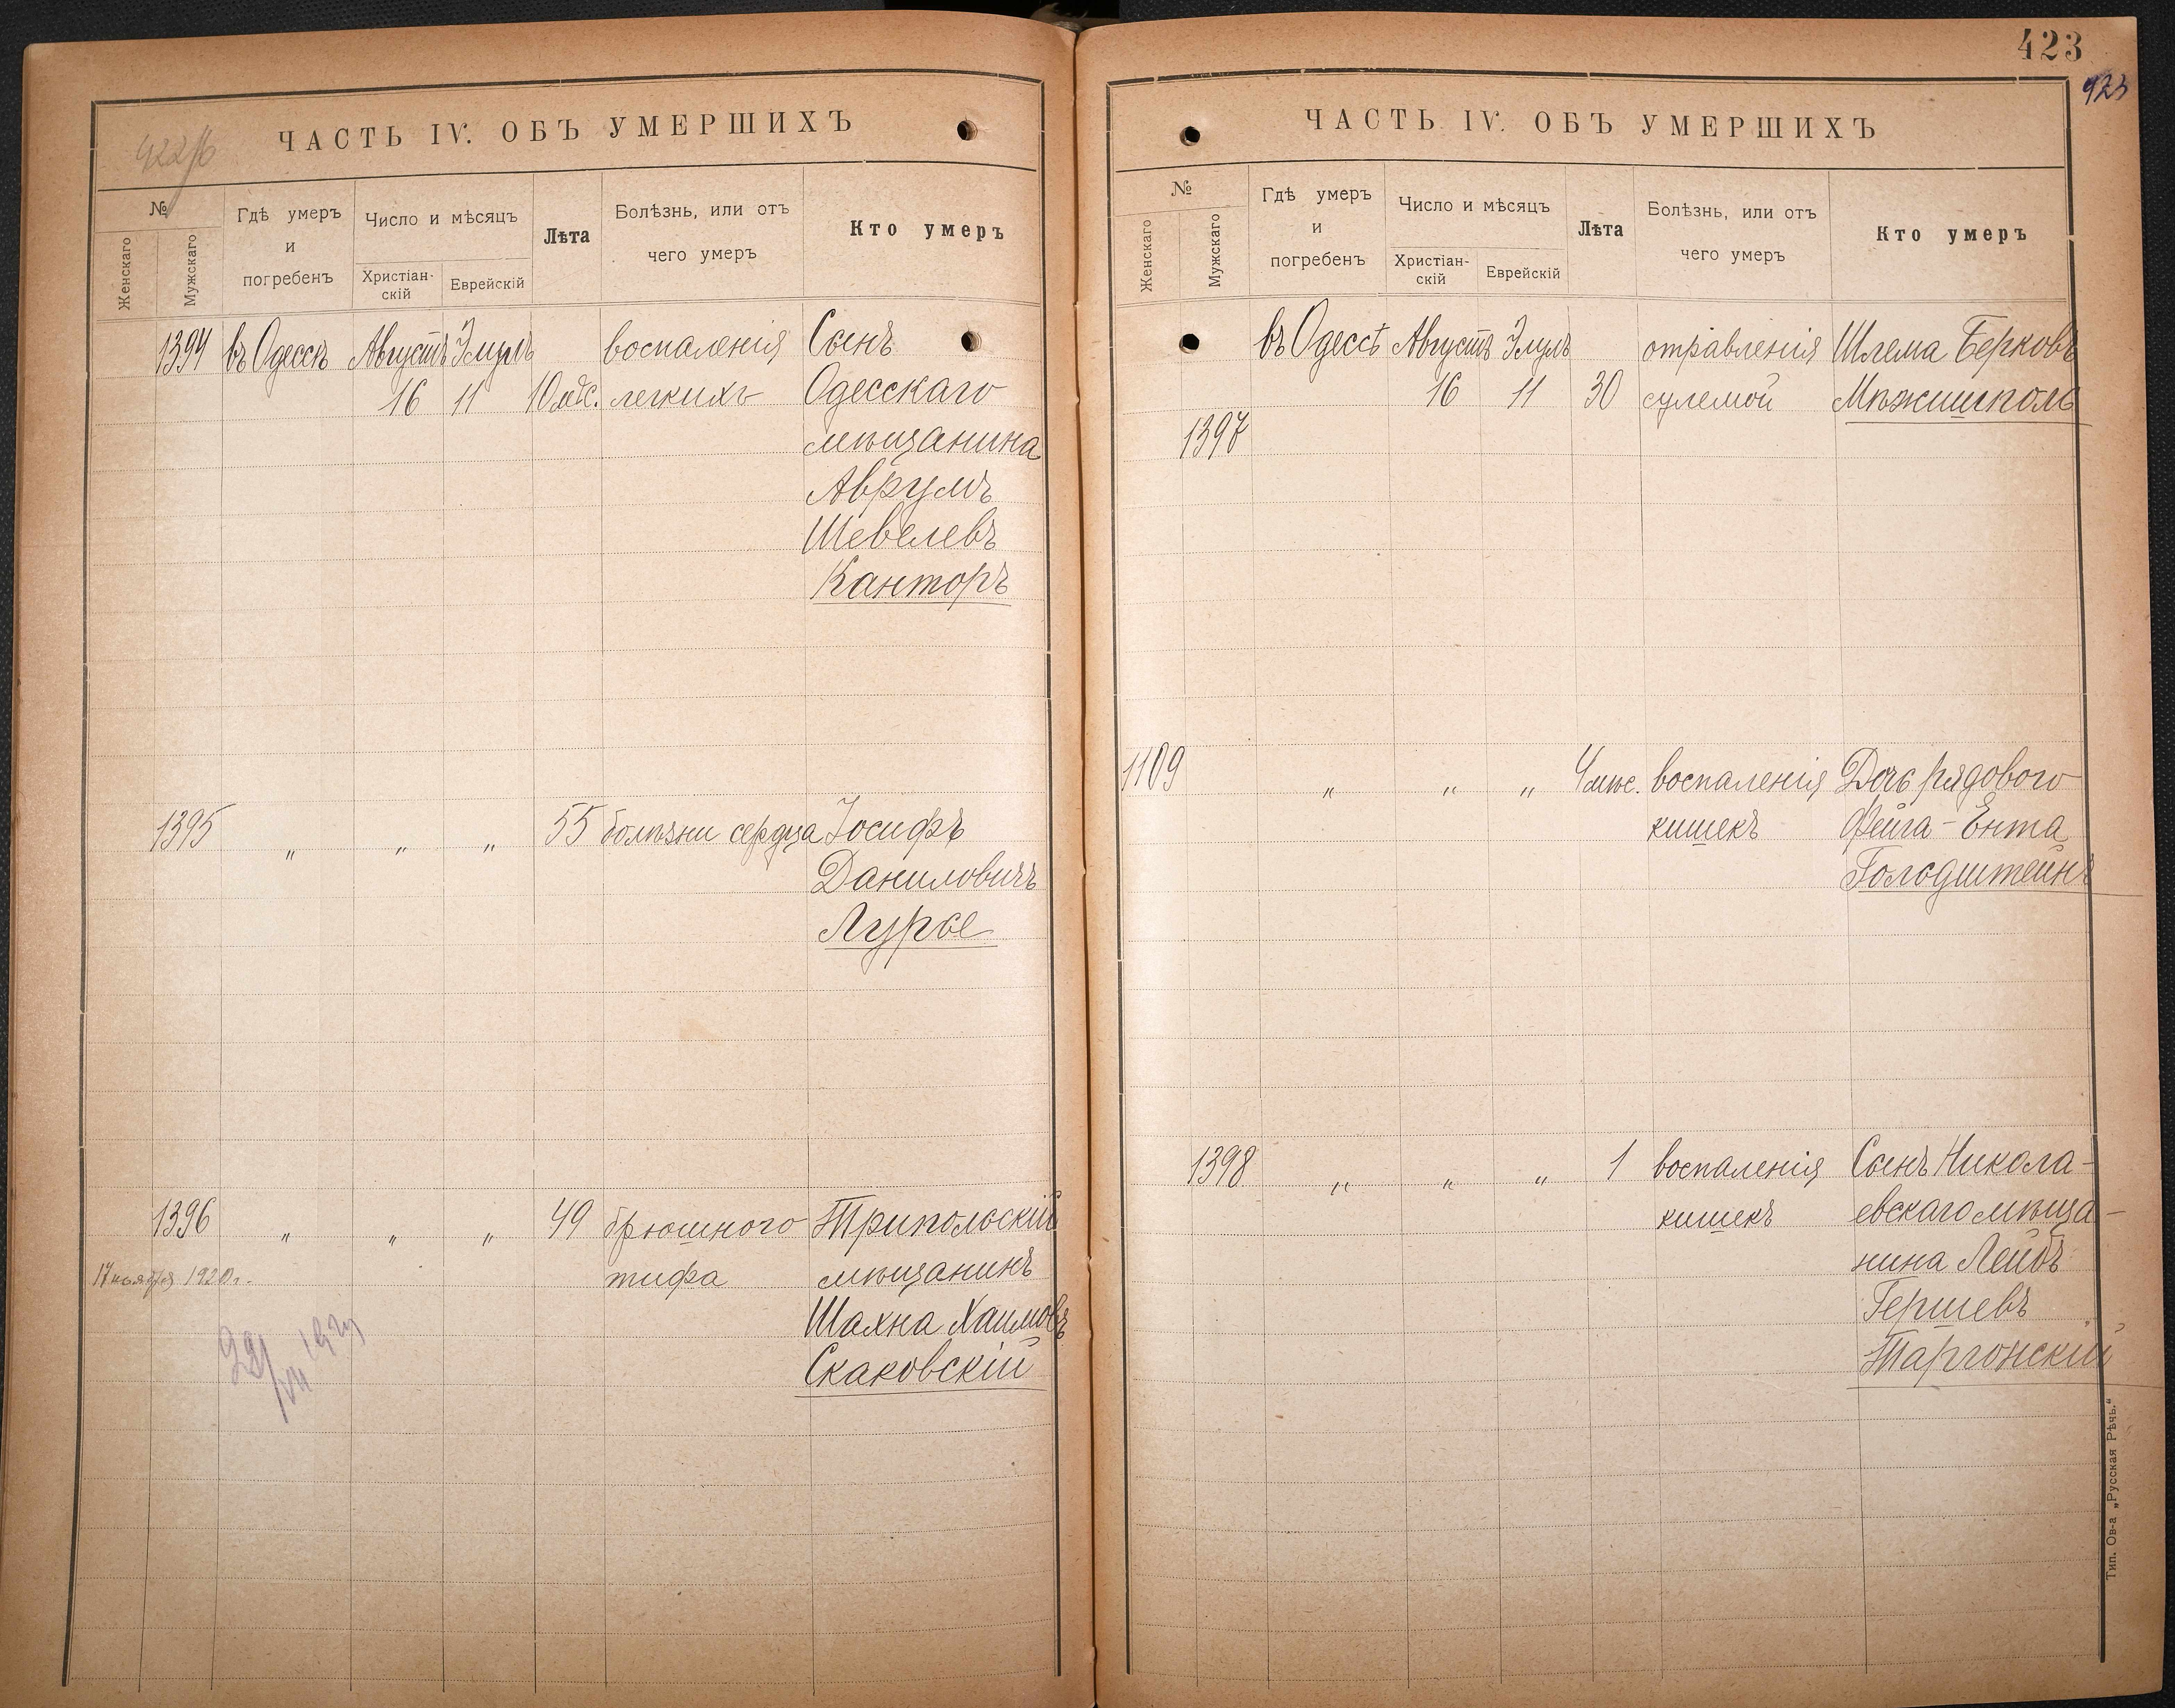 422/б
ЧАСТЬ IV. ОБЪ УМЕРШИХЪ
№
Женскаго
Мужскаго
Гдѣ умеръ
и
погребенъ
Число и мѣсяцъ
Христіан-
скій
Еврейскій
Лѣта
Болѣзнь, или отъ
чего умеръ
Кто умеръ
1394 въ Одессѣ Августъ Элулъ воспаленія Сынъ
16 11 10 мѣс. легкихъ Одесскаго
мѣщанина
Аврумъ
Шевелевъ
Канторъ
1395 „ „ „ 55 болѣзни сердца Іосифъ
Даниловичъ
Лурье
1396 „ „ „ 49 брюшного Трипольскій
17 ноября 1920 г. тифа мѣщанинъ
Шахна Хаимовъ
Скаковскій
423
423
ЧАСТЬ IV. ОБЪ УМЕРШИХЪ
№
Женскаго
Мужскаго
Гдѣ умеръ
и
погребенъ
Число и мѣсяцъ
Христіан-
скій
Еврейскій
Лѣта
Болѣзнь, или отъ
чего умеръ
Кто умеръ
въ Одессѣ Августъ Элулъ отравленія Шлема Берковъ
16 11 30 сулемой Мѣжишполь
1397
1109 „ „ „ 4 мѣс. воспаленія Дочь рядового
кишекъ Фейга-Ента
Голодштейнъ
1398 „ „ „ 1 воспаленія Сынъ Никола-
кишекъ евскаго мѣща-
нина Лейбъ
Гершевъ
Таргонскій
Тип. Ов-а „Русская Рѣчь.“